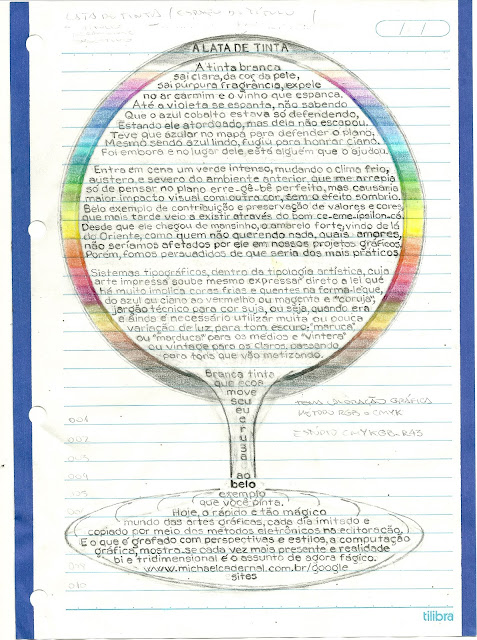 LATA DE TINTA / CAPAÇO DO TISNAU /
/ /
A LATA DE TINTA
A tinta branca
sai clara, da cor da pele,
sai púrpura fragrância, expele
no ar carmim e o vinho que espanca.
Até a violeta se espanta, não sabendo
Que o azul cobalto estava só defendendo,
Estando ele atordoado, mas dela não escapou.
Teve que azular no mapa para defender o plano.
Mesmo sendo azul lindo, fugiu para honrar ciano.
Foi embora e no lugar dele, está alguém que o ajudou.
Entra em cena um verde intenso, mudando o clima frio,
austero e severo do ambiente anterior, que me arrepia
só de pensar no plano erre-gê-bê perfeito, mas causaria
maior impacto visual com outra cor, sem o efeito sombrio.
Belo exemplo de contribuição e preservação de valores e cores,
que mais tarde veio a existir através do bom ce-eme-ípsilon-cá.
Desde que ele chegou de mansinho, o amarelo forte, vindo de lá
do Oriente, como quem não querendo nada, quais amores,
não seríamos afetados por ele em nossos projetos gráficos.
Porém, fomos persuadidos de que seria dos mais práticos.
Sistemas tipográficos, dentro da tipologia artística, cuja
arte impressa soube mesmo expressar direto a lei que
há muito implica cores frias e quentes na forma leque,
do azul ou ciano ao vermelho ou magenta e "coruja",
jargão técnico para cor suja, ou seja, quando era
e ainda é necessário utilizar muita ou pouca
variação de luz, para tom escuro: "maruca"
ou "morduca" para os médios e "vintera"
ou vintage para os claros, passando
para tons que vão matizando.
Branca tinta
que ecoa
move
seu
eu
e
r
u
s
a
d
a
ao
belo
exemplo
que você pinta.
Hoje, a rápido e tão mágico
mundo das artes gráficas, cada dia imitado e
copiado por meio dos métodos eletrônicos na editoração.
E o que é grafado com perspectivas e estilos, a computação
gráfica, mostra-se cada vez mais presente e realidade
bi e tridimensional é o assunto de agora fágico.
www.michaelcadernal.com.br/google
sites
TEMA: VALORAÇÃO GRÁFICA
MÉTODO RGB e CMYK
001
002
003
004
005
010
tilibra